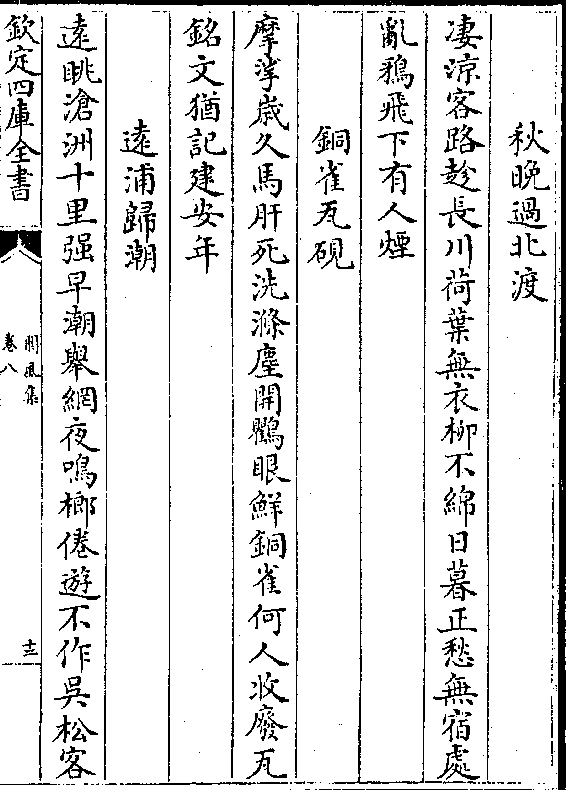 秋晚過北渡
凄涼客路趁長川荷葉無衣栁不綿日暮正愁無宿處
亂鴉飛下有人煙
銅雀瓦硯
摩挲歲久馬肝死洗滌塵開鸜眼鮮銅雀何人收廢瓦
銘文猶記建安年
遠浦歸潮
遠眺滄洲十里强早潮舉網夜鳴榔倦遊不作吳松客
欽定四庫全書
閬風集
卷八
十三